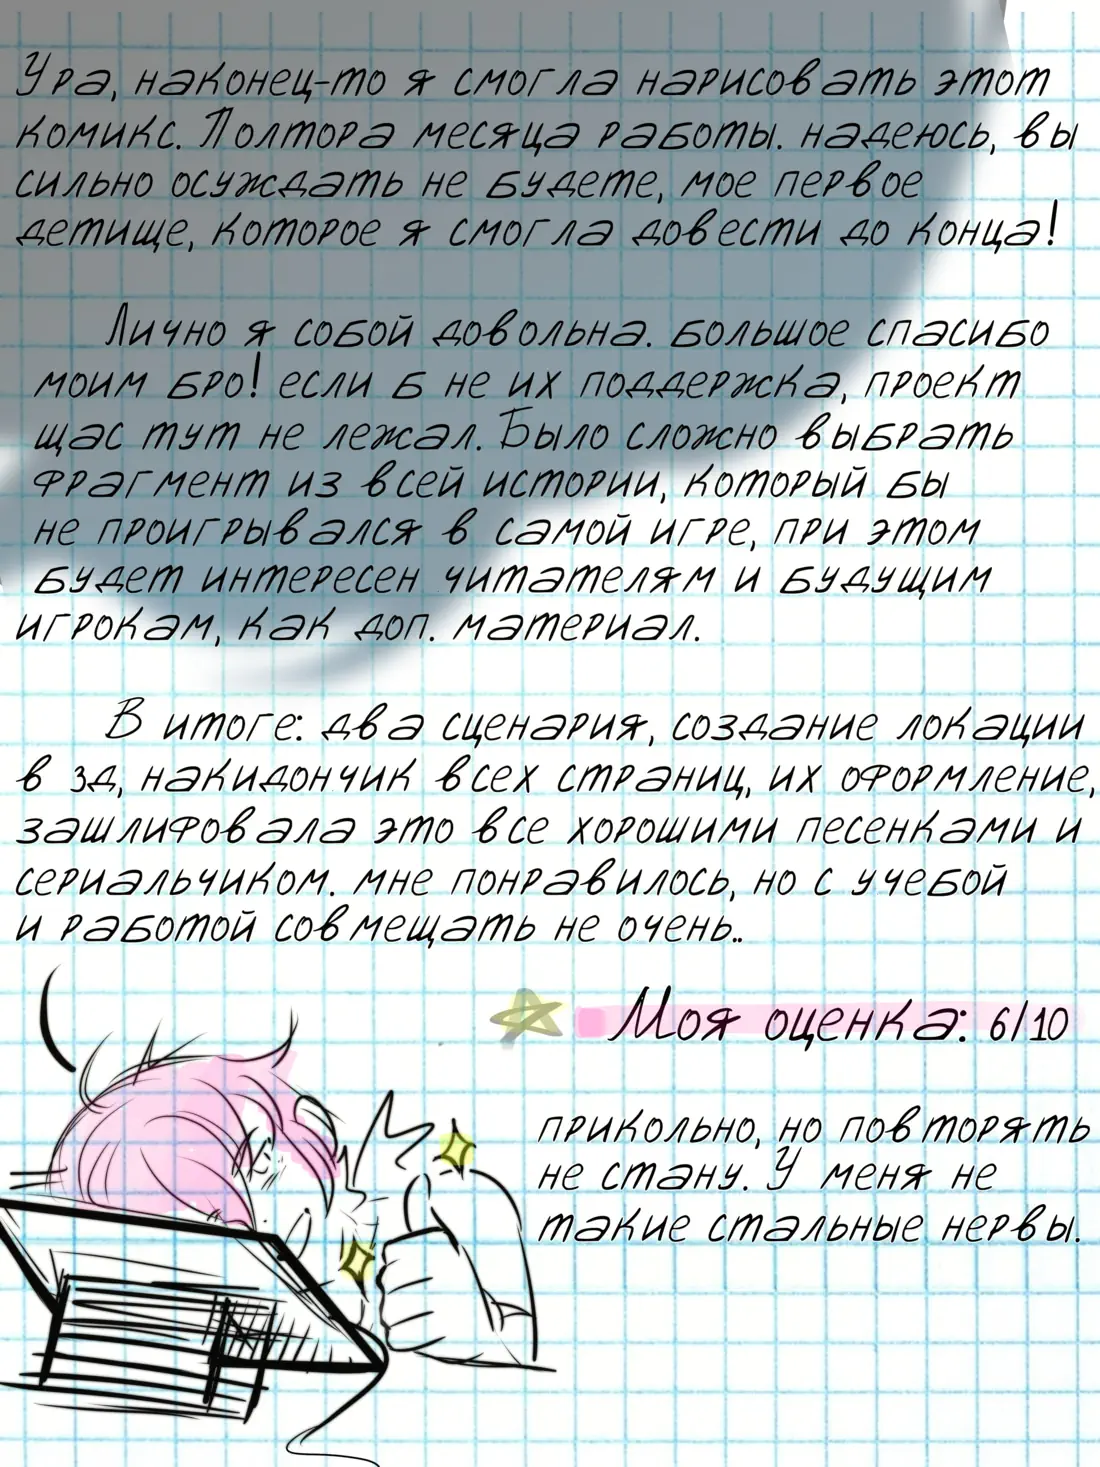 Ура, наконец-то я смогла нарисовать этот
комикс. Полтора месяца работы. надеюсь, вы
сильно осуждать не будете, мое первое
детище, которое я смогла довести до конца!
Лично я собой довольна. большое спасибо
моим бро! если б не их поддержка, проект
щас тут не лежал. Было сложно выбрать
фрагмент из всей истории, который бы
не проигрывался в самой игре, при этом
будет интересен читателям и будущим
игрокам, как доп. материал.
В итоге: два сценария, создание локации
в 3д, накидончик всех страниц, их оформление,
зашлифовала это все хорошими песенками и
сериальчиком. мне понравилось, но с учебой
и работой совмещать не очень..
Моя оценка: 6/10
прикольно, но повторять
не стану. У меня не
такие стальные нервы.